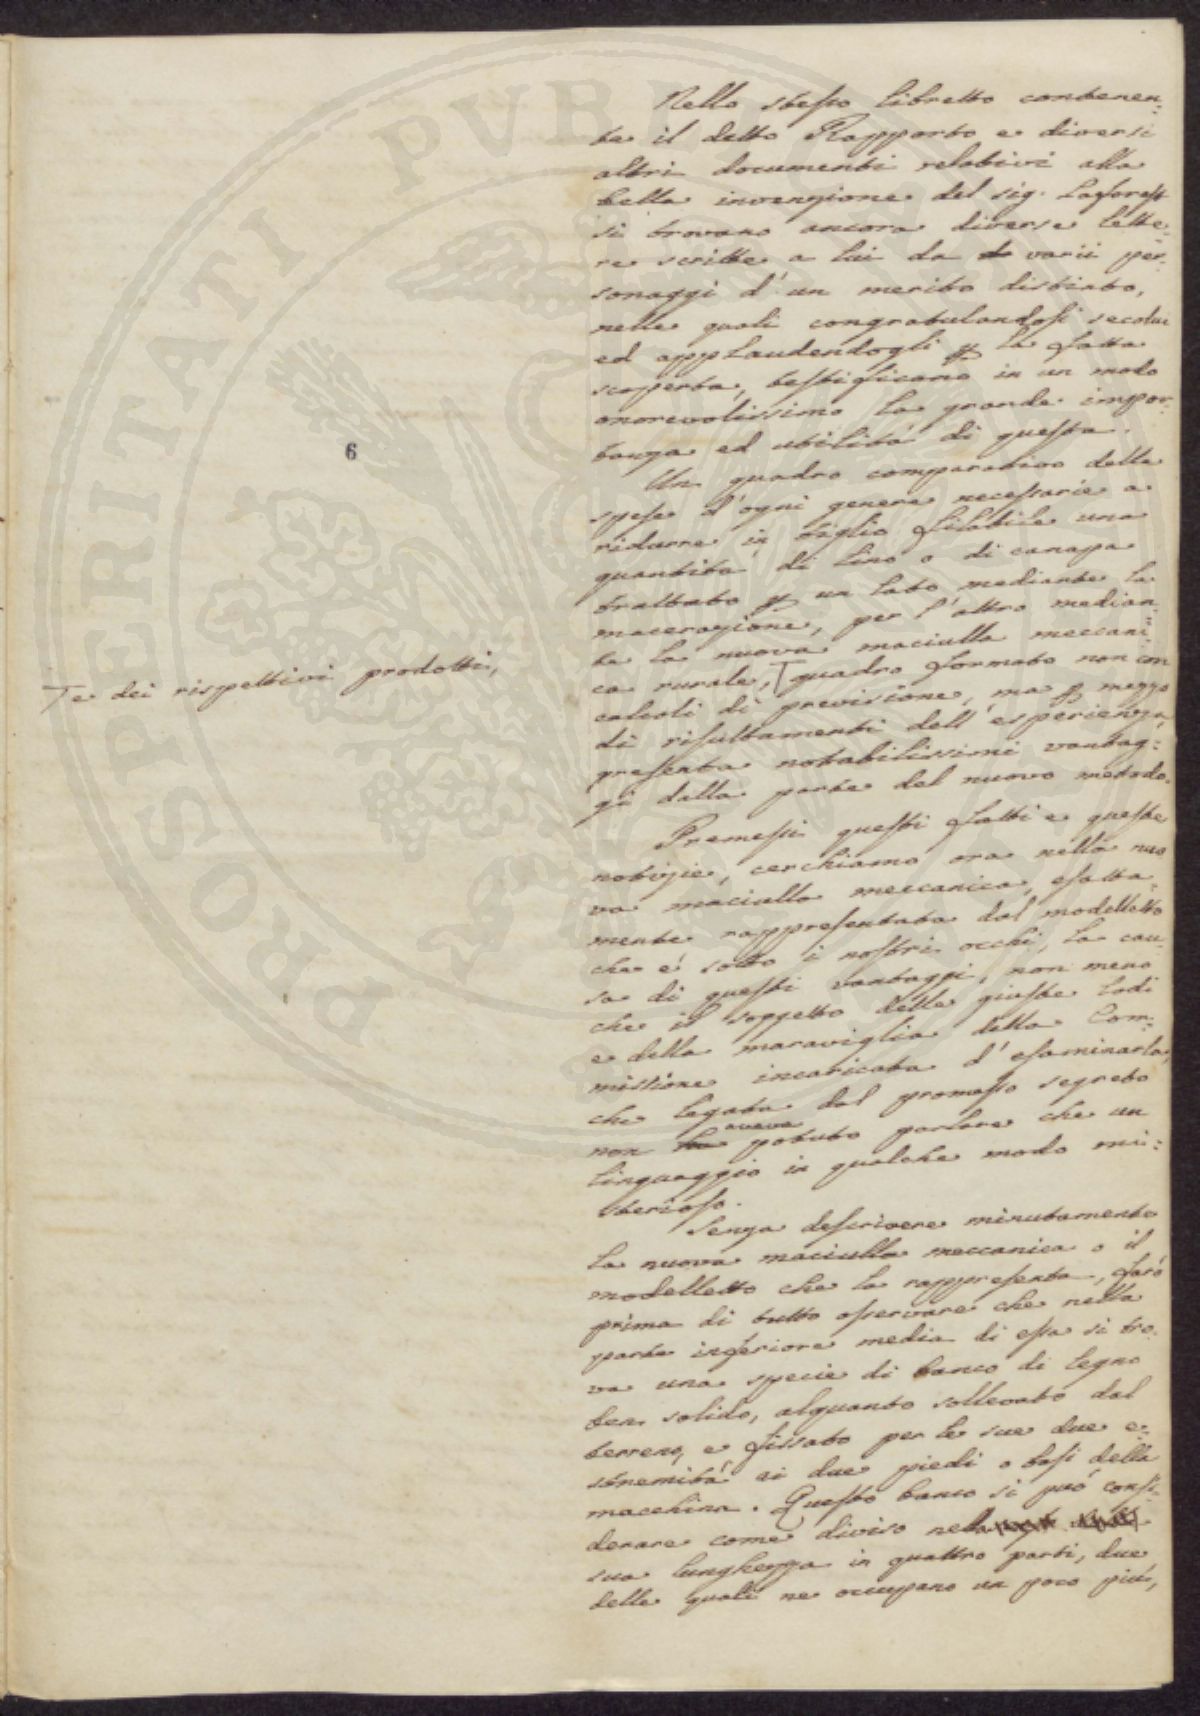 Nello stesso libretto contenen:
te il detto Rapporto e diversi
altri documenti relativi alla
bella invenzione del sig. Laforest
si trovano ancora diverse lette:
re scritte a lui da varii per:
sonaggi d'un merito distinto,
nelle quali congratulandosi secolui
ed applaudendogli p la fatta
scoperta, testificano in un modo
onorevolissimo la grande impor:
tanza ed utilità di questa.
Un quadro comparativo delle
spese d'ogni genere necessarie a
ridurre in tiglio filabile una
quantità di lino o di canapa
trattato p un lato mediante la
macerazione, per l'altro median:
te la nuova maciulla meccani:
ca rurale, T quadro formato non con
calcoli di previsione, ma p mezzo
di risultamenti dell'esperienza,
presenta notabilissimi vantag:
gi dalla parte del nuovo metodo.
T e dei rispettivi prodotti,
6
Premessi questi fatti e queste
notizie, cerchiamo ora nella nuo
va maciulla meccanica, esatta:
mente rappresentata dal modelletto
che è sotto i nostri occhi, la cau:
sa di questi vantaggi, non meno
che il soggetto delle giuste lodi
e della maraviglia della Com:
missione incaricata d'esaminarla,
che legata dal promesso segreto
non ha aveva potuto parlare che un
linguaggio in qualche modo mi:
sterioso.
Senza descrivere minutamente
la nuova maciulla meccanica o il
modelletto che la rappresenta, farò
prima di tutto osservare che nella
parte inferiore media di essa si tro:
va una specie di banco di legno
ben solido, alquanto sollevato dal
terreno, e fissato per le sue due e:
stremità ai due piedi o basi della
macchina. Questo banco si può consi:
derare come diviso nella
sua lunghezza in quattro parti, due
delle quali ne occupano un poco più,
PROSPERITATI PVBLICAE